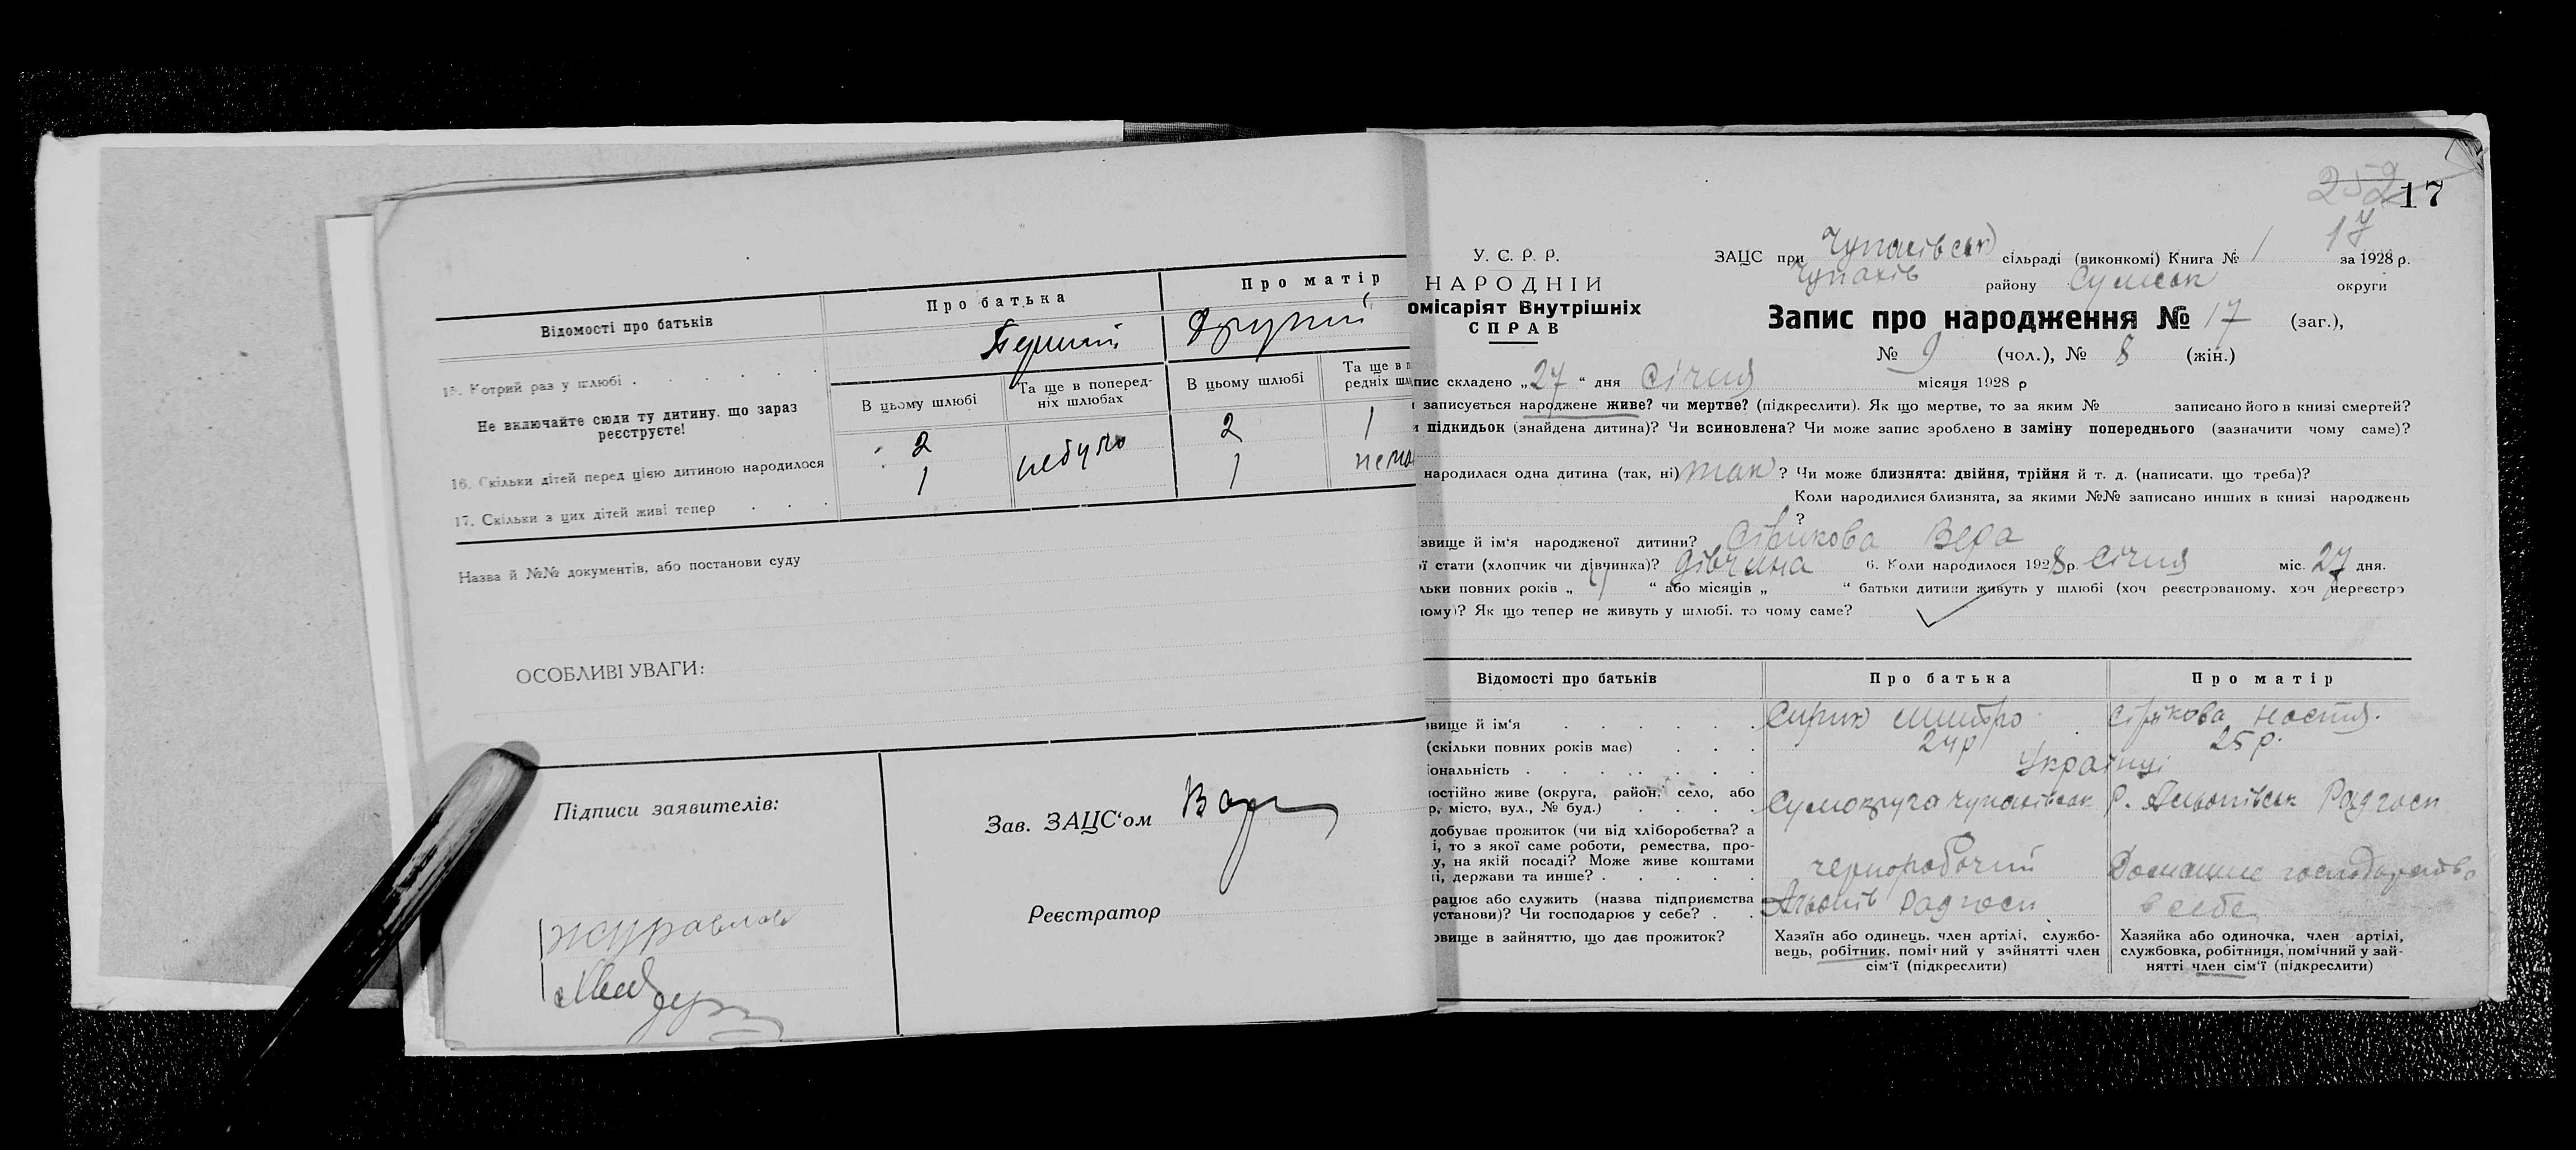 Відомості про батьків
Про батька
Про матір
15. Котрий раз у шлюбі
Перший
Другий
Не включайте сюди ту дитину, що зараз реєструєте!
В цьому шлюбі
Та ще в поперед-
ніх шлюбах
В цьому шлюбі
Та ще в п
редніх шл
16. Скільки дітей перед цією дитиною народилося
2
небуло
2
1
17. Скільки з цих дітей живі тепер
1
1
Назва й №№ документів, або постанови суду
ОСОБЛИВІ УВАГИ:
Підписи заявителів:
Зав. ЗАЦС'ом
Реєстратор
252
17
17
У. С. Р. Р.
НАРОДНІЙ
омісаріят Внутрішніх
СПРАВ
ЗАЦС при Чупахівськ сільраді (виконкомі) Книга № 1 за 1928 р.
Чупахів району Сумськ округи
Запис про народження № 17 (заг.),
№ 9 (чол.), № 8 (жін.)
пис складено „27“ дня Січня місяця 1928 р
записується народжене живе? чи мертве? (підкреслити). Як що мертве, то за яким № записано його в книзі смертей?
и підкидьок (знайдена дитина)? Чи всиновлена? Чи може запис зроблено в заміну попереднього (зазначити чому саме)?
народилася одна дитина (так, ні) так ? Чи може близнята: двійня, трійня й т. д. (написати, що треба)?
Коли народилися близнята, за якими №№ записано инших в книзі народжень
?
звище й ім'я народженої дитини? Сірикова Вера
ої стати (хлопчик чи дівчинка)? Дівчина 6. Коли народилося 1928 р. Січня міс. 27 дня.
льки повних років „ “ або місяців „ “ батьки дитини живуть у шлюбі (хоч реєстрованому, хоч нереєстро
ному)? Як що тепер не живуть у шлюбі, то чому саме?
Відомості про батьків
Про батька
Про матір
звище й ім'я
Сирик Митро
Сірікова Настя.
(скільки повних років має)
24 р
25 р.
іональність
Українці
остійно живе (округа, район, село, або
р, місто, вул., № буд.)
Сумокруга Чупахівськ Р. Радгосп
добуває прожиток (чи від хліборобства? а
і, то з якої саме роботи, ремества, про-
у, на якій посаді? Може живе коштами
ії, держави та инше?
чернорабочий
Домашне господарство
рацює або служить (назва підприємства
установи)? Чи господарює у себе?
Радгосп
в себе
овище в зайняттю, що дає прожиток?
Хазяїн або одинець, член артілі, службо-
вець, робітник, помічний у зайнятті член
сім'ї (підкреслити)
Хазяйка або одиночка, член артілі,
службовка, робітниця, помічний у зай-
нятті член сім'ї (підкреслити)